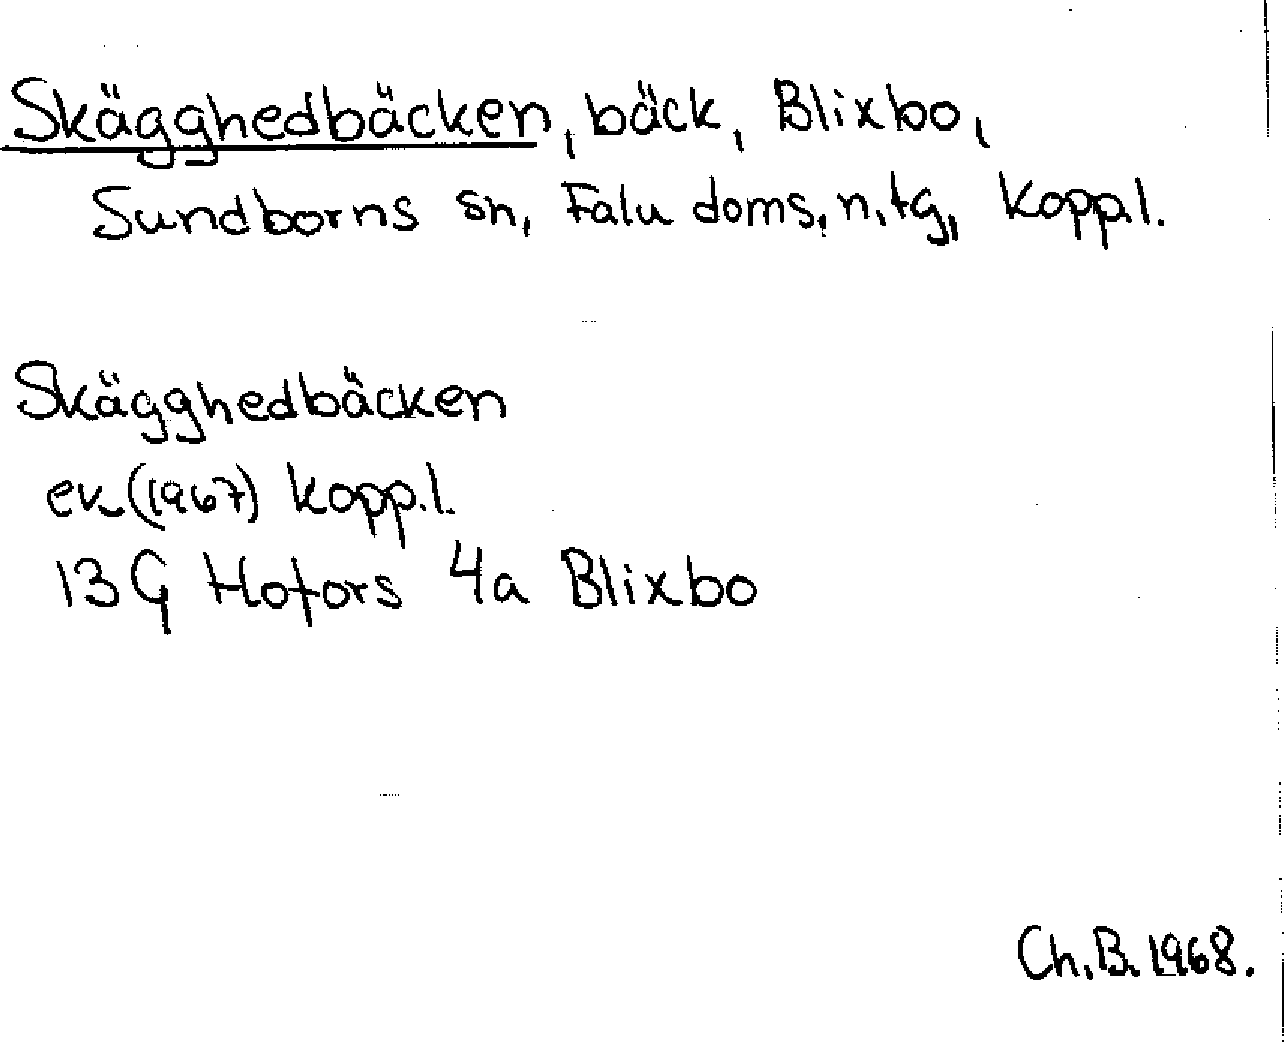 Skägghedbäcken, bäck, Blixbo,
Sundborns sn, Falu doms. n. tg, Kopp.l.
Skägghedbäcken
ek (1967) Kopp.l.
13G Hofors 4a Blixbo
Ch. B. 1968.